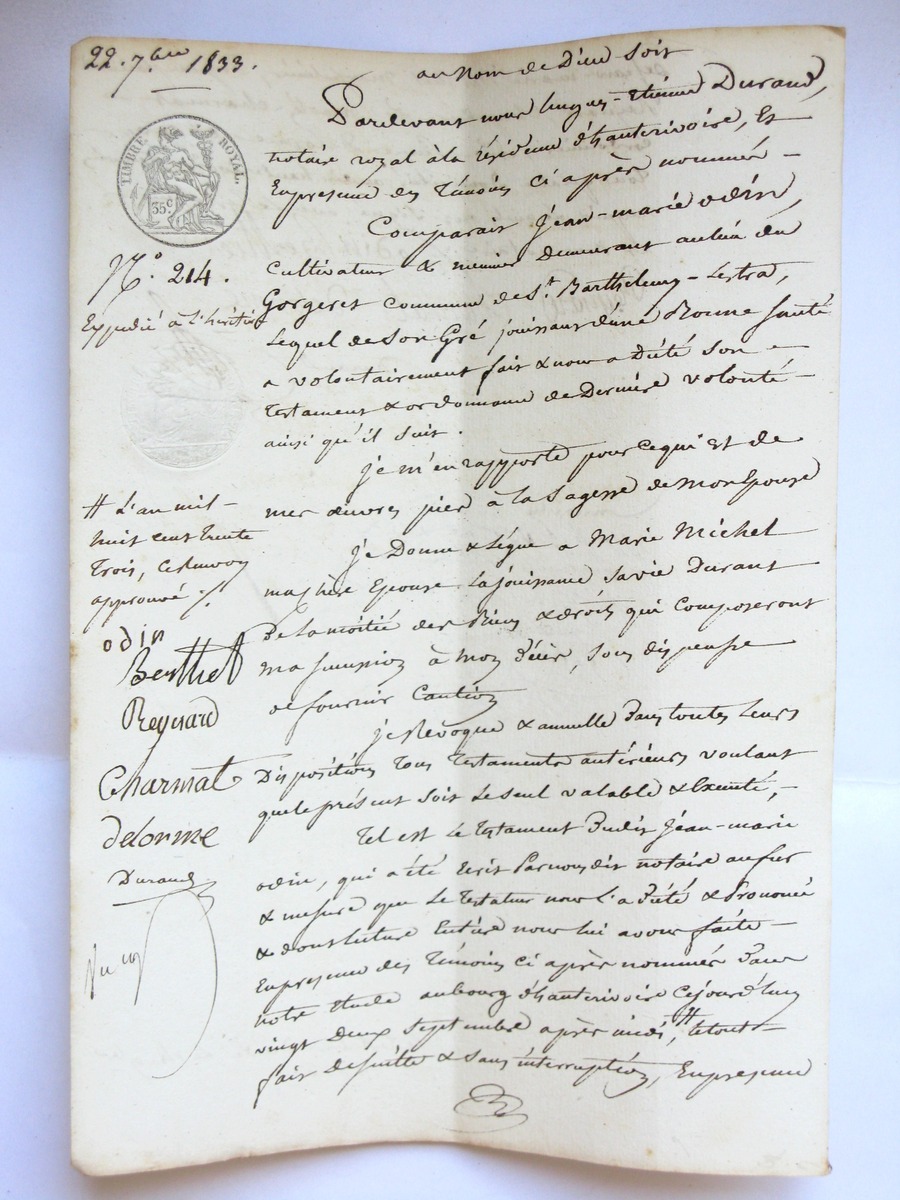 22. 7.bre 1833.
au Nom de Dieu soit
TIMBRE ROYAL.
35 c
N.o 214.
Expédié à l'héritière
Pardevant nous hugues-Etienne Durand,
notaire royal à la résidence d'hauterivoire, Et
En presence des Témoins ci après nommés -
Comparait Jean-marie odin,
Cultivateur & meunier demeurant au lieu du
Gorgeret commune de St. Barthelemy-Lestra,
Lequel de son Gré jouissant d'une Bonne santé
a volontairement fait & nous a Dicté son -
Testament & ordonnance de Derniere volonté -
ainsi qu'il suit.
je m'en rapporte pour ce qui Est de
mes œuvres pies à la sagesse de mon Epouse
je Donne & Légue a Marie Michel
ma chère Epouse La jouissance sa vie Durant
De la moitié des Biens & droits qui composeront
ma succession à mon décès, sous dispense
de fournir Caution
je Revoque & annulle Dans toutes Leurs
Dispositions Tous Testaments antérieurs voulant
que le présent soit Le seul valable & Exécuté, -
Tel est Le Testament Dudit Jean-marie
odin, qui a été Ecrit Par nous dit notaire au fur
& mesure que Le Testateur nous l'a Dicté & Prononcé
& dont lecture Entière nous lui avons faite -
En presence des Témoins ci après nommés Dans
notre Etude au bourg d'hauterivoire Cejourd'huy
vingt Deux Septembre après midi, # le tout -
fait de suitte & sans interruption, En presence
# L'an mil -
huit cent trente
Trois, ce renvoy
approuvé ./.
odin
Berthet
Reynard
Charmat
delorme
Durand